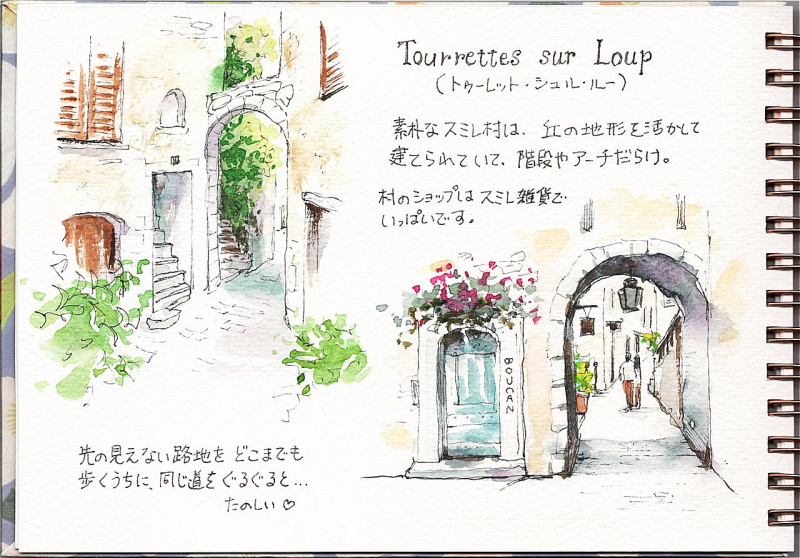 Tourrettes sur Loup
(トゥーレット・シュル・ルー)
素朴なスミレ村は、丘の地形を活かして
建てられていて、階段やアーチだらけ。
村のショップはスミレ雑貨で
いっぱいです。
BOUCAN
先の見えない路地をどこまでも
歩くうちに、同じ道をぐるぐると...
たのしい♡